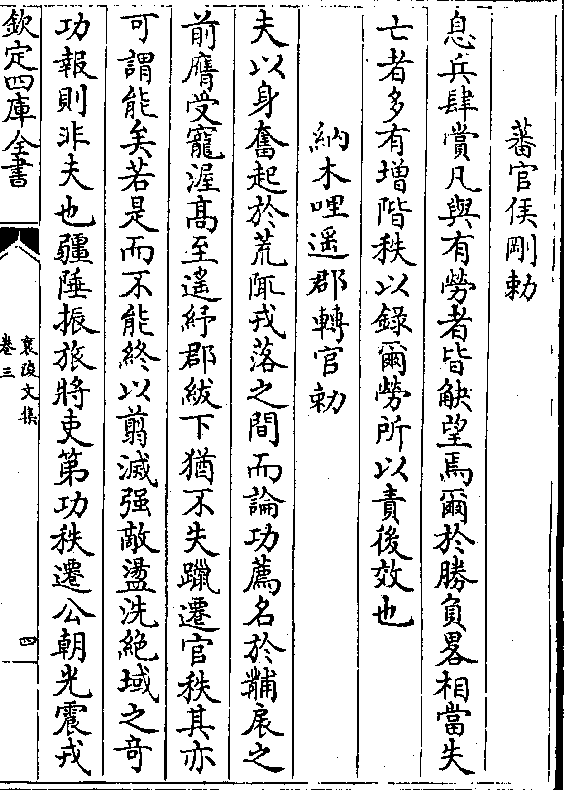 蕃官侯剛勅
息兵肆賞凡與有勞者皆觖望焉爾於勝負畧相當失
亡者多有增階秩以録爾勞所以責後效也
納木哩遥郡轉官勅
夫以身奮起於荒陬戎落之間而論功薦名於黼扆之
前膺受寵渥髙至遙紆郡紱下猶不失躐遷官秩其亦
可謂能矣若是而不能終以翦滅强敵盪洗絶域之竒
功報則非夫也疆陲振旅將吏第功秩遷公朝光震戎
欽定四庫全書
襄陵文集
卷三
四